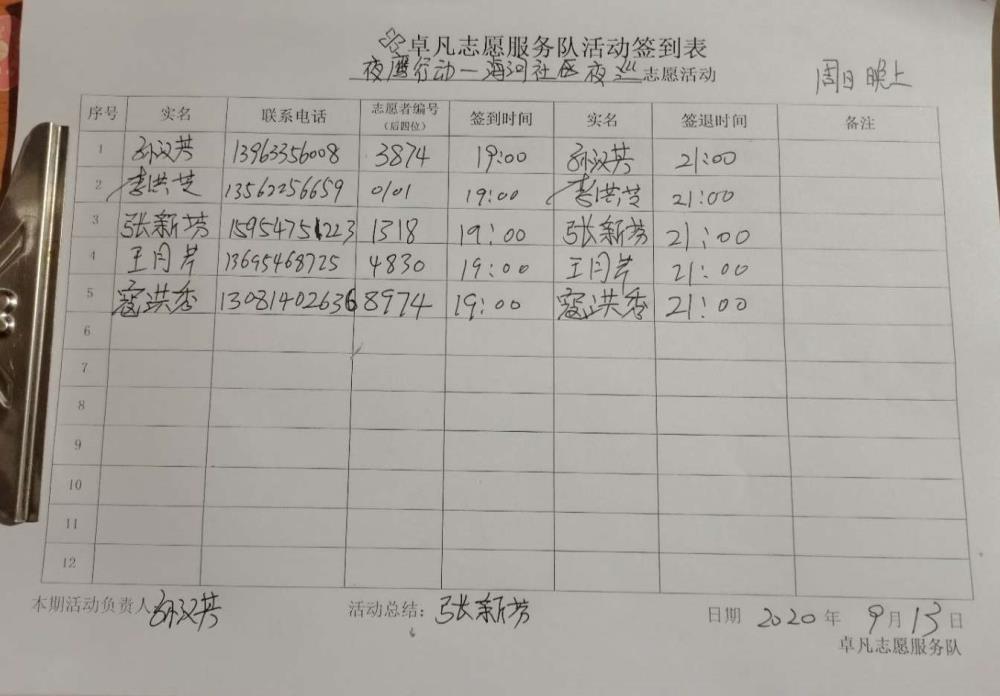 卓凡志愿服务队活动签到表
夜鹰行动—海河社区夜巡志愿活动
周日晚上
序号 实名 联系电话 志愿者编号(后四位) 签到时间 实名 签退时间 备注
1 孙汉芬 13963356008 3874 19:00 孙汉芬 21:00
2 李洪芝 13562256659 0101 19:00 李洪芝 21:00
3 张新芳 15954751223 1318 19:00 张新芳 21:00
4 王月芹 13695468725 4830 19:00 王月芹 21:00
5 寇洪香 13081402636 8974 19:00 寇洪香 21:00
6
7
8
9
10
11
12
本期活动负责人 孙汉芬 活动总结: 张新芳 日期 2020年 9月13日
卓凡志愿服务队